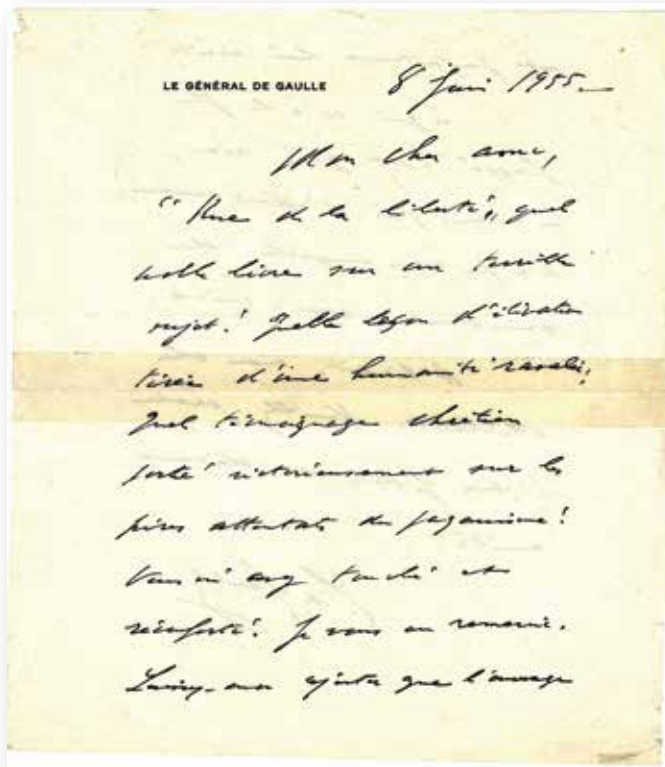 LE GÉNÉRAL DE GAULLE
8 Juin 1955.
Mon cher ami,
"Rue de la liberté", quel
noble livre sur un terrible
sujet! Quelle leçon d'élévation
tirée d'une humanité ravalée!
Quel témoignage chrétien
porté victorieusement sur les
pires attentats du paganisme!
Vous m'avez touché et
réconforté. Je vous en remercie.
Laissez-moi ajouter que l'ouvrage